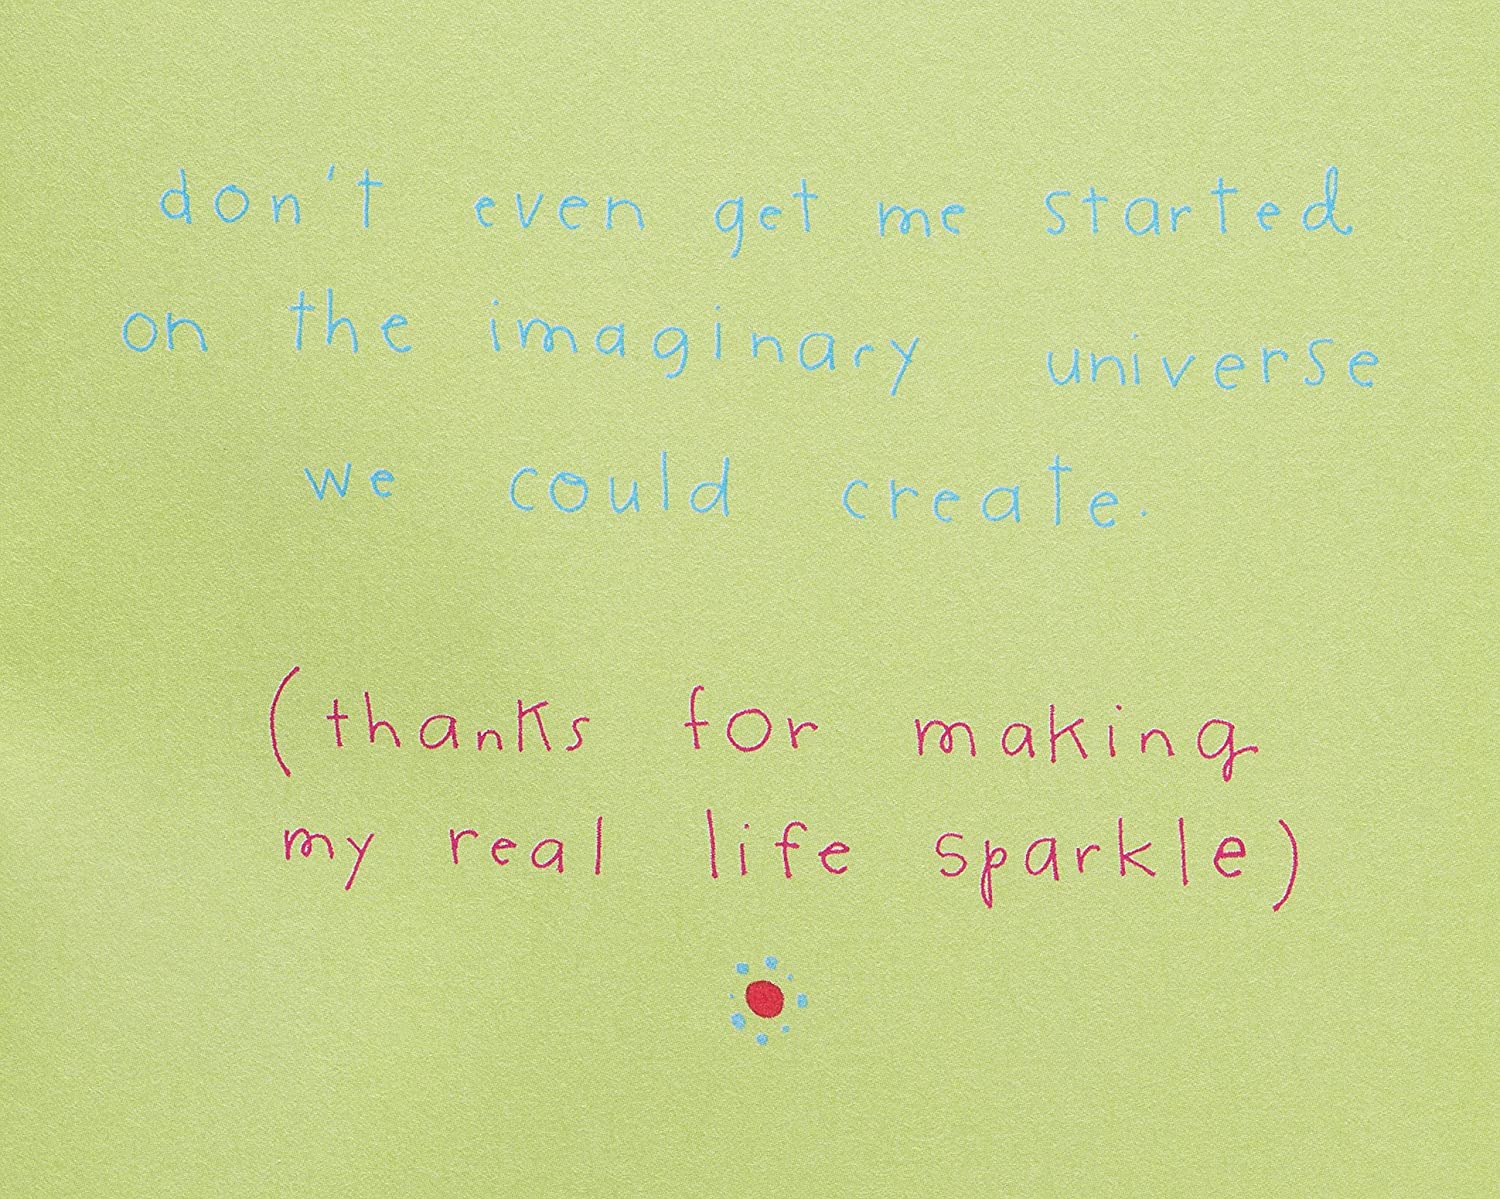 don't even get me started
on the imaginary universe
we could create.
(thanks for making
my real life sparkle)